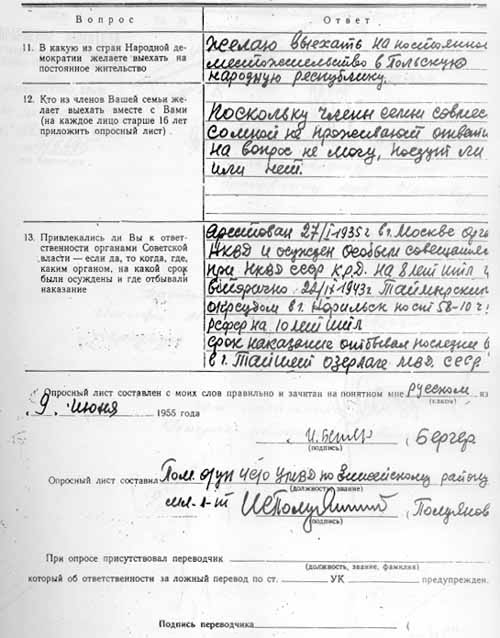 Вопрос Ответ
11. В какую из стран Народной де-
мократии желаете выехать на
постоянное жительство
Желаю выехать на постоянное
местожительство в Польскую
народную республику.
12. Кто из членов Вашей семьи же-
лает выехать вместе с Вами
(на каждое лицо старше 16 лет
приложить опросный лист).
Поскольку члены семьи совмес
со мной не проживают ответи
на вопрос не могу, поедут ли
или нет.
13. Привлекались ли Вы к ответ-
ственности органами Советской
власти — если да, то когда, где,
каким органом, на какой срок
были осуждены и где отбывали
наказание
Арестован 27/I-1935 г в г. Москве орга
НКВД и осужден особым совещанием
при НКВД СССР К.Р.Д. на 8 лет ИТЛ и
вторично 22/IX 1943 г Таймырским
окрсудом в г. Норильск по ст 58-10 ч
РСФСР на 10 лет ИТЛ
срок наказание отбывал последнее в
в г. Тайшет озерлаге МВД СССР
Опросный лист составлен с моих слов правильно и зачитан на понятном мне русском яз
(каком)
9. июня 1955 года
Бергер
(подпись)
Опросный лист составил Пом. опер УМВД по Енисейскому району
(должность, звание)
мл. л-т Полуянов
(подпись)
При опросе присутствовал переводчик
(должность, звание, фамилия)
который об ответственности за ложный перевод по ст. УК предупрежден.
Подпись переводчика (